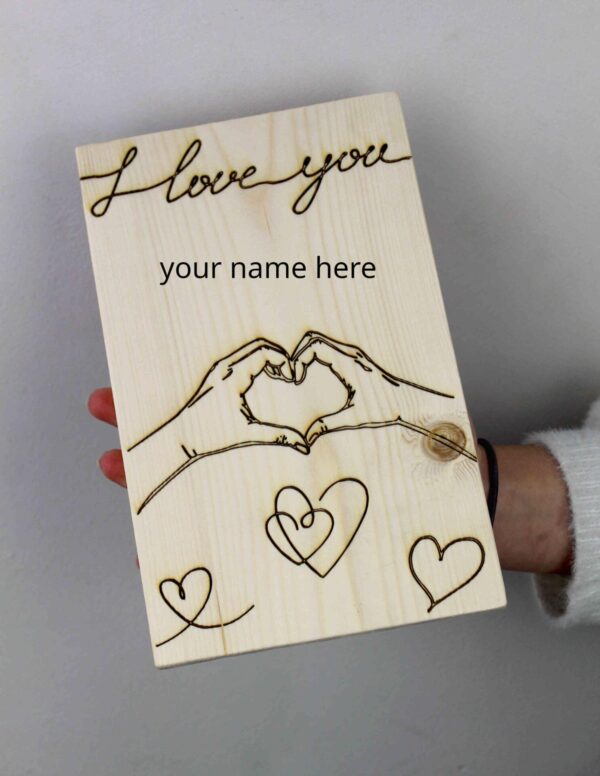 I love you
your name here